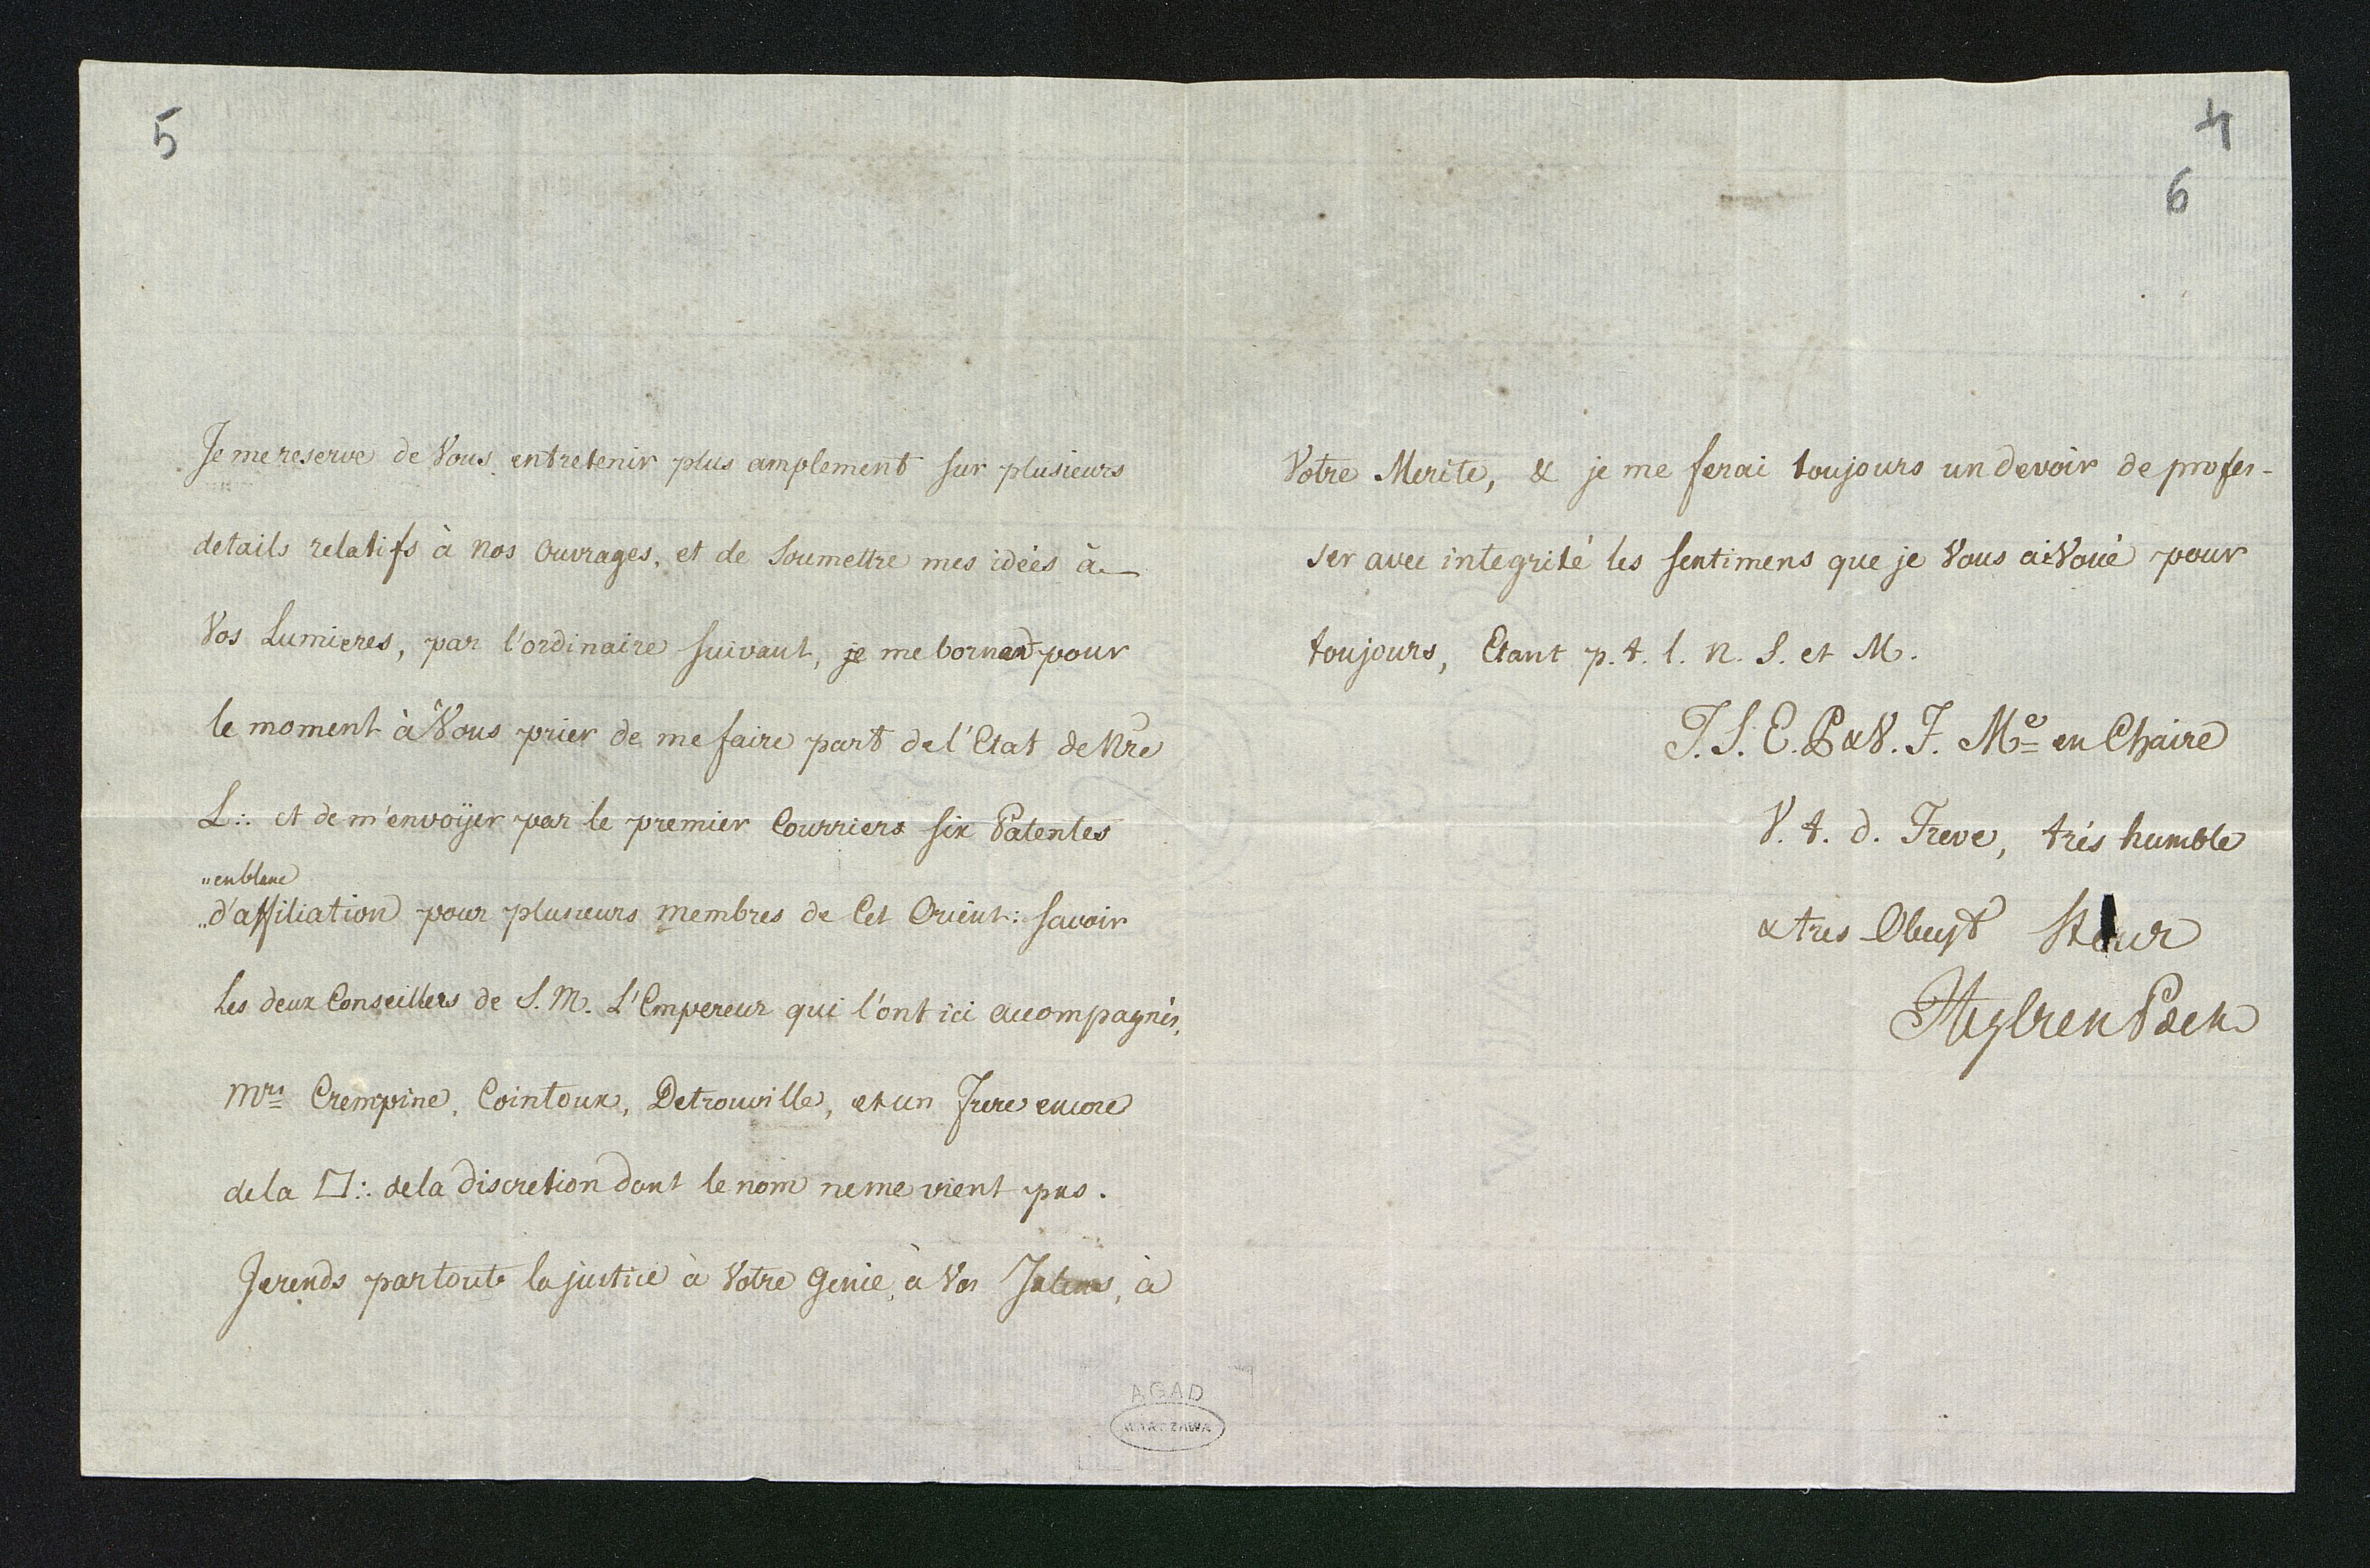 5
Je me reserve de Vous entretenir plus amplement sur plusieurs
details relatifs à nos Ouvrages, et de Soumettre mes idées à
Vos Lumieres, par l'ordinaire suivant, je me bornant pour
le moment à Vous prier de me faire part de l'Etat de Nre
L:. et de m'envoÿer par le premier Courriers six Patentes
"en blanc
"d'affiliation pour plusieurs membres de Cet Orient: savoir
Les deux Conseillers de S. M. L'Empereur qui l'ont ici accompagnés,
Mrs Crempine, Cointoux, Detrouville, et un Frere encore
de la □:. de la Discretion dont le nom ne me vient pas.
Je rends partout la justice à Votre Genie, à Vos Talens, à
4
6
Votre Merite, & je me ferai toujours un devoir de profes-
ser avec integrité les sentimens que je Vous ai Voué pour
toujours, Etant p. t. l. n. S. et M.
T. S. E. P. & V. F. Me en Chaire
V. t. d. Freve, trés humble
& tres Obeyst
AGAD
WARSZAWA